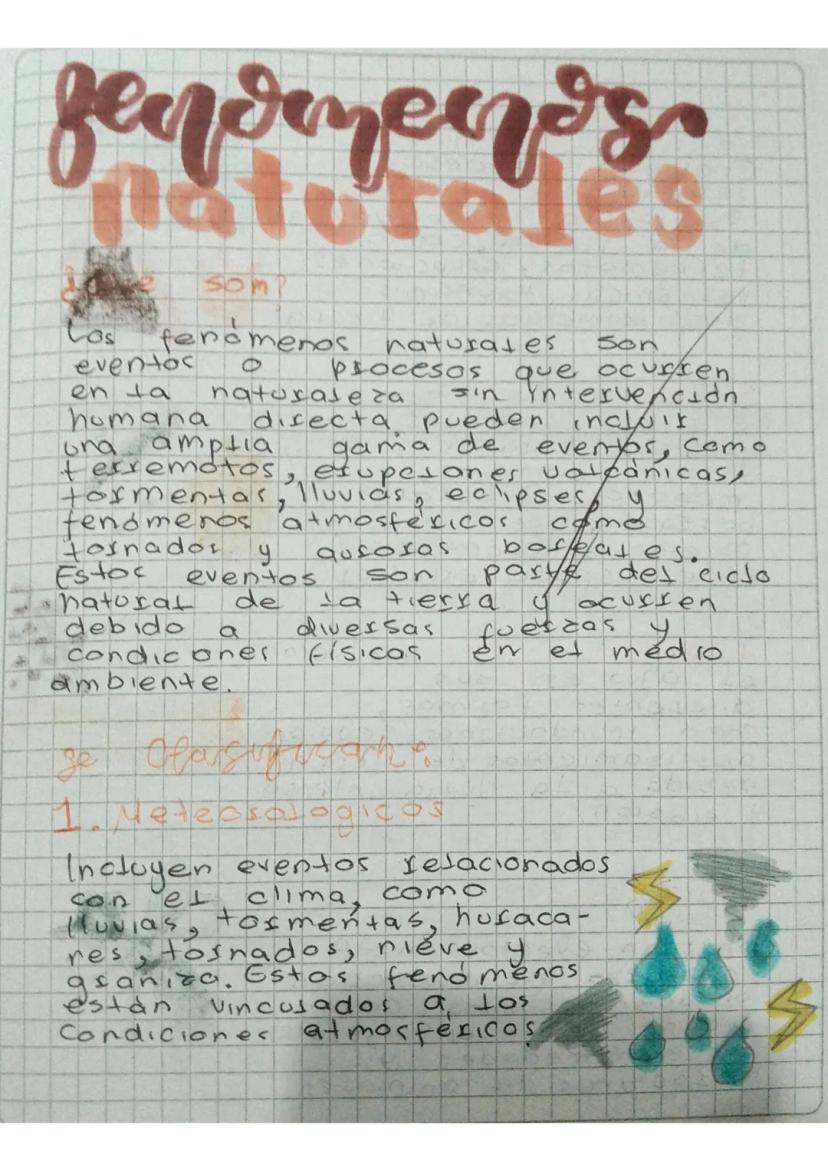 fenómenos
naturales
¿que som?
Los fenómenos naturales son
eventos o procesos que ocurren
en la naturaleza sin intervención
humana directa, pueden incluir
una amplia gama de eventos, como
terremotos, erupciones volcánicas,
tormentas, lluvias, eclipses, y
fenómenos atmosféricos como
tornados y auroras boreales.
Estos eventos son parte del ciclo
natural de la tierra y ocurren
debido a diversas fuerzas y
condiciones físicas en el medio
ambiente.
se clasifican:
1. Meteorologicos
Incluyen eventos relacionados
con el clima, como
lluvias, tormentas, huraca-
res, tornados, nieve y
graniza. Estos fenómenos
están vinculados a los
condiciones atmosféricos.